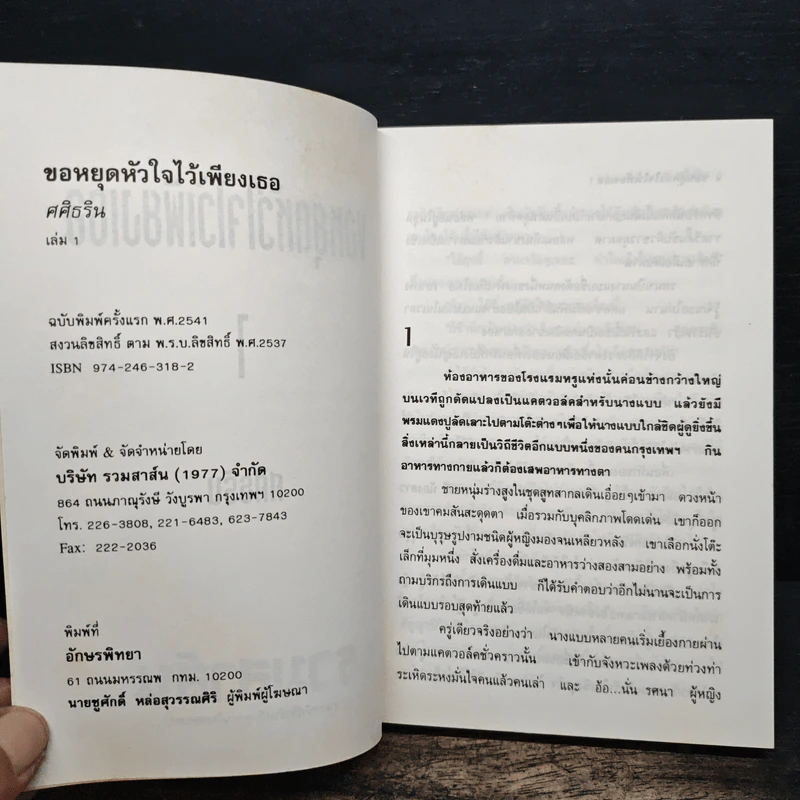 ขอหยุดหัวใจไว้เพียงเธอ
ศศิธริน
เล่ม 1
ฉบับพิมพ์ครั้งแรก พ.ศ.2541
สงวนลิขสิทธิ์ ตาม พ.ร.บ.ลิขสิทธิ์ พ.ศ.2537
ISBN 974-246-318-2
จัดพิมพ์ & จัดจำหน่ายโดย
บริษัท รวมสาส์น (1977) จำกัด
864 ถนนภาณุรังษี วังบูรพา กรุงเทพฯ 10200
โทร. 226-3808, 221-6483, 623-7843
Fax: 222-2036
พิมพ์ที่
อักษรพิทยา
61 ถนนมหรรณพ กทม. 10200
นายชูศักดิ์ หล่อสุวรรณศิริ ผู้พิมพ์ผู้โฆษณา
1
ห้องอาหารของโรงแรมหรูแห่งนั้นค่อนข้างกว้างใหญ่
บนเวทีถูกดัดแปลงเป็นแคตวอล์คสำหรับนางแบบ แล้วยังมี
พรมแดงปูลัดเลาะไปตามโต๊ะต่างๆเพื่อให้นางแบบใกล้ชิดผู้ดูยิ่งขึ้น
สิ่งเหล่านี้กลายเป็นวิถีชีวิตอีกแบบหนึ่งของคนกรุงเทพฯ กิน
อาหารทางกายแล้วก็ต้องเสพอาหารทางตา
ชายหนุ่มร่างสูงในชุดสูทสากลเดินเอื่อยๆเข้ามา ดวงหน้า
ของเขาคมสันสะดุดตา เมื่อรวมกับบุคลิกภาพโดดเด่น เขาก็ออก
จะเป็นบุรุษรูปงามชนิดผู้หญิงมองจนเหลียวหลัง เขาเลือกนั่งโต๊ะ
เล็กที่มุมหนึ่ง สั่งเครื่องดื่มและอาหารว่างสองสามอย่าง พร้อมทั้ง
ถามบริกรถึงการเดินแบบ ก็ได้รับคำตอบว่าอีกไม่นานจะเป็นการ
เดินแบบรอบสุดท้ายแล้ว
ครู่เดียวจริงอย่างว่า นางแบบหลายคนเริ่มเยื้องกายผ่าน
ไปตามแคตวอล์คชั่วคราวนั้น เข้ากับจังหวะเพลงด้วยท่วงท่า
ระเหิดระหงมั่นใจคนแล้วคนเล่า และ อ้อ...นั่น รศนา ผู้หญิง